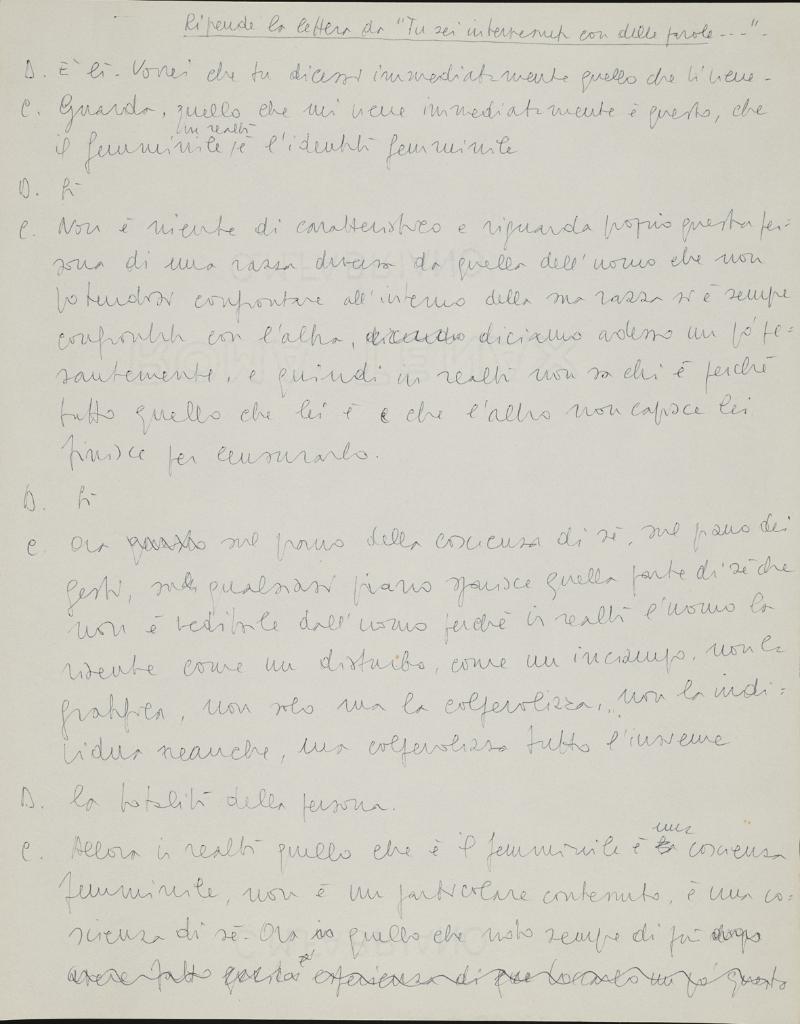 Riprende la lettera da "Tu sei intervenuta con delle parole - - -" -
D. È lì - Vorrei che tu dicessi immediatamente quello che ti viene -
C. Guarda, quello che mi viene immediatamente è questo, che
in realtà
il femminile, è l'identità femminile
D. Sì
C. Non è niente di caratteristico e riguarda proprio questa per-
sona di una razza diversa da quella dell'uomo che non
potendosi confrontare all'interno della sua razza si è sempre
confrontata con l'altra, dicendo diciamo adesso un po' pe=
santemente, e quindi in realtà non sa chi è perché
tutto quello che lei è e che l'altro non capisce lei
finisce per censurarlo.
D. Sì
C. Ora questo sul piano della coscienza di sé, sul piano dei
gesti, sul qualsiasi piano sparisce quella parte di sé che
non è vedibile dall'uomo perché in realtà l'uomo la
risente come un disturbo, come un inciampo, non la
gratifica, non solo ma la colpevolizza, non la indi=
vidua neanche, ma colpevolizza tutto l'insieme
D. La totalità della persona.
C. Allora in realtà quello che è il femminile è
una
la coscienza
femminile, non è un particolare contenuto, è una co=
scienza di sé. Ora io quello che noto sempre di più dopo
avere fatto questa esperienza di un po' questo